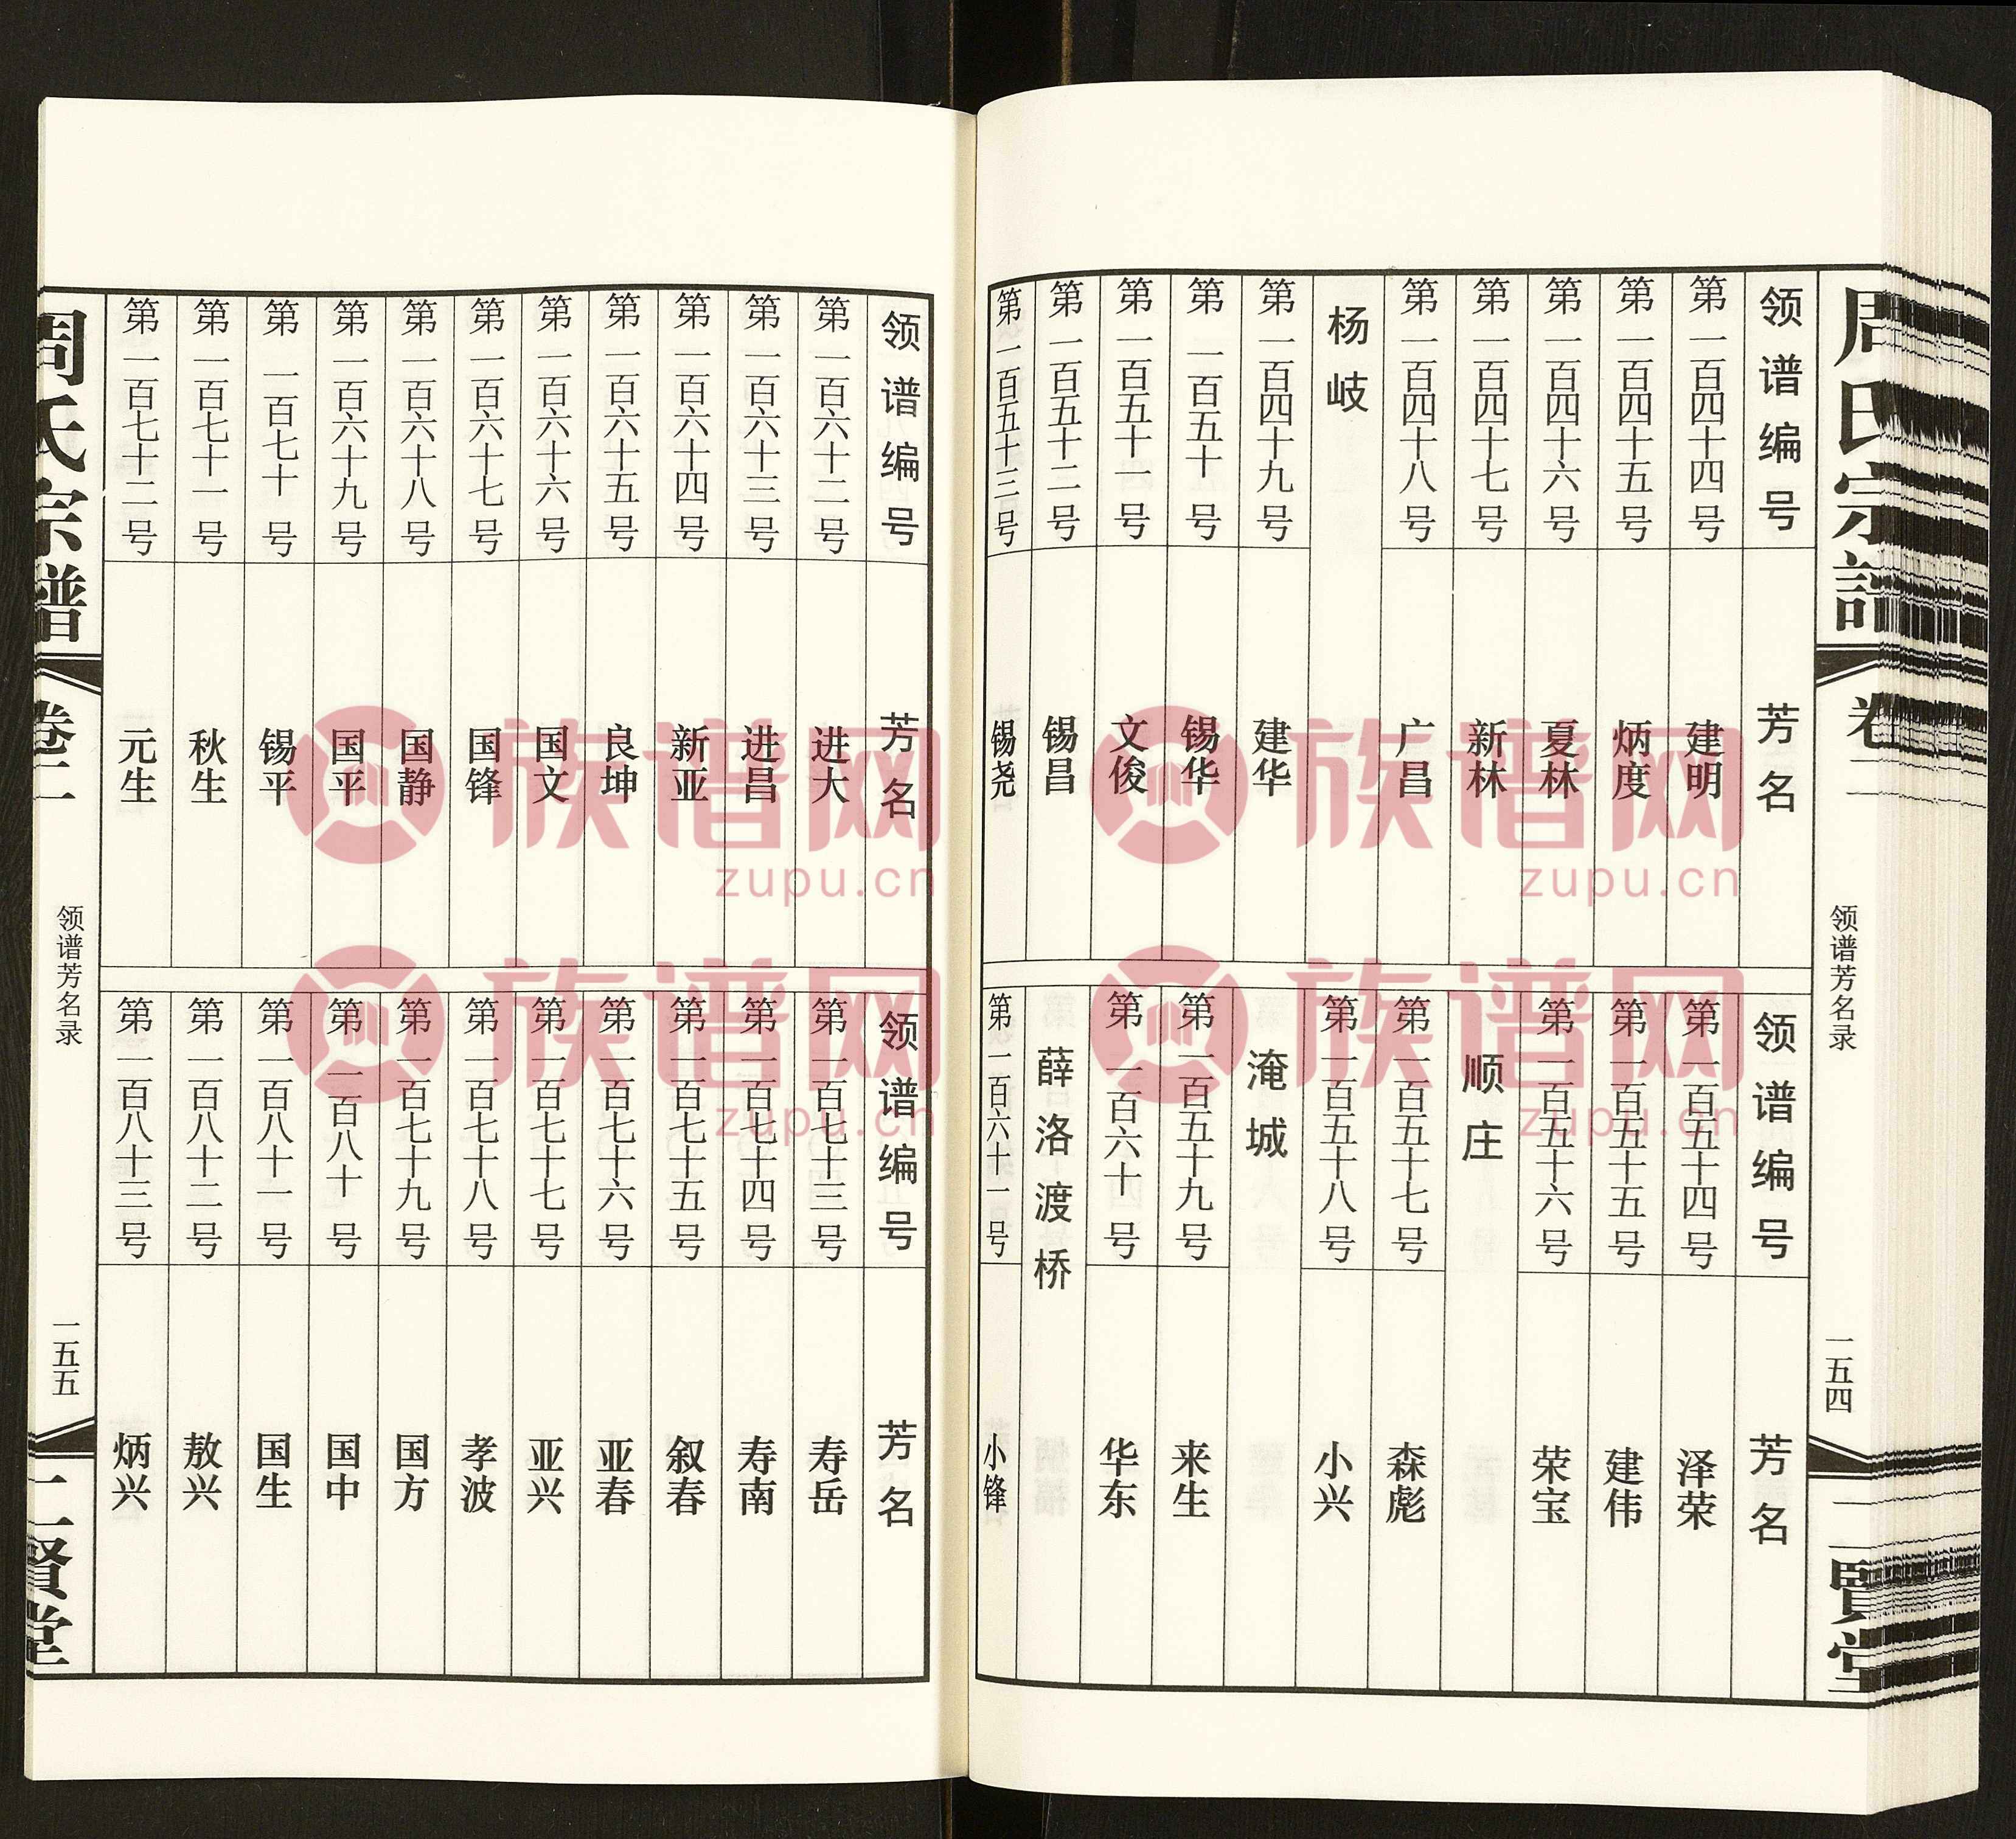 周氏宗譜
卷二
领谱芳名录
一五四
二賢堂
领谱编号 芳名
第一百四十四号 建明
第一百四十五号 炳度
第一百四十六号 夏林
第一百四十七号 新林
第一百四十八号 广昌
杨岐
第一百四十九号 建华
第一百五十号 锡华
第一百五十一号 文俊
第一百五十二号 锡昌
第一百五十三号 锡尧
领谱编号 芳名
第一百五十四号 泽荣
第一百五十五号 建伟
第一百五十六号 荣宝
顺庄
第一百五十七号 森彪
第一百五十八号 小兴
淹城
第一百五十九号 来生
第一百六十号 华东
薛洛渡桥
第一百六十一号 小锋
领谱编号 芳名
第一百六十二号 进大
第一百六十三号 进昌
第一百六十四号 新亚
第一百六十五号 良坤
第一百六十六号 国文
第一百六十七号 国锋
第一百六十八号 国静
第一百六十九号 国平
第一百七十号 锡平
第一百七十一号 秋生
第一百七十二号 元生
领谱编号 芳名
第一百七十三号 寿岳
第一百七十四号 寿南
第一百七十五号 叙春
第一百七十六号 亚春
第一百七十七号 亚兴
第一百七十八号 孝波
第一百七十九号 国方
第一百八十号 国中
第一百八十一号 国生
第一百八十二号 敖兴
第一百八十三号 炳兴
周氏宗譜
卷二
领谱芳名录
一五五
二賢堂
族谱网
zupu.cn
族谱网
zupu.cn
族谱网
zupu.cn
族谱网
zupu.cn